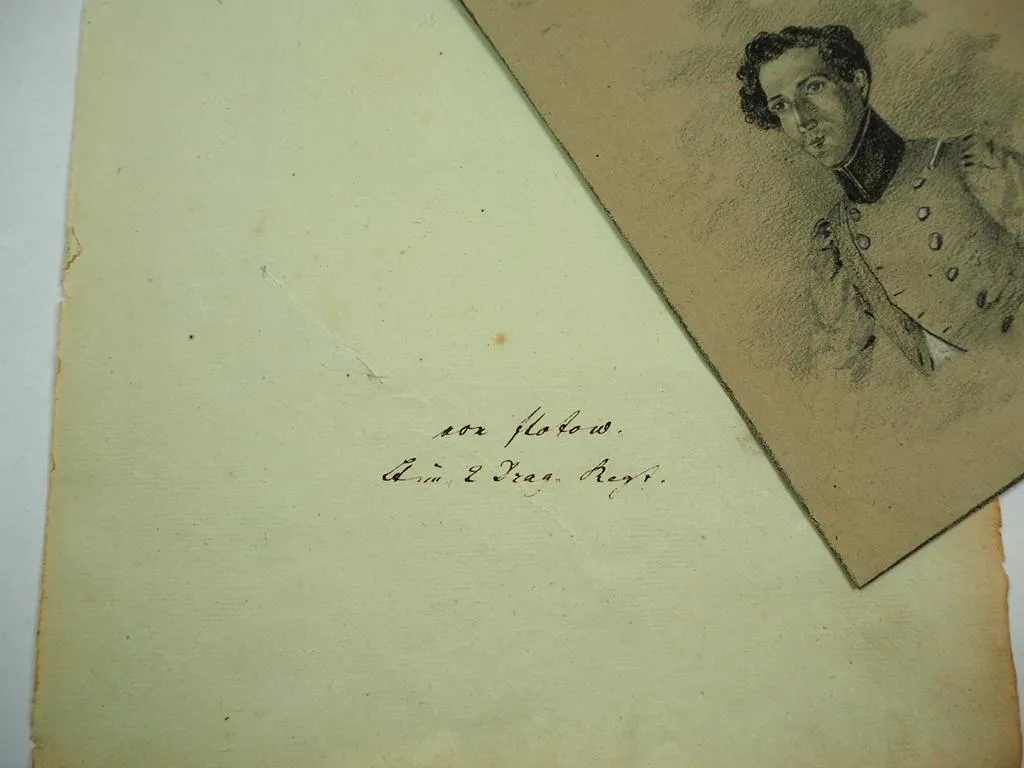 von Flotow.
Lt. im 2 Drag. Regt.